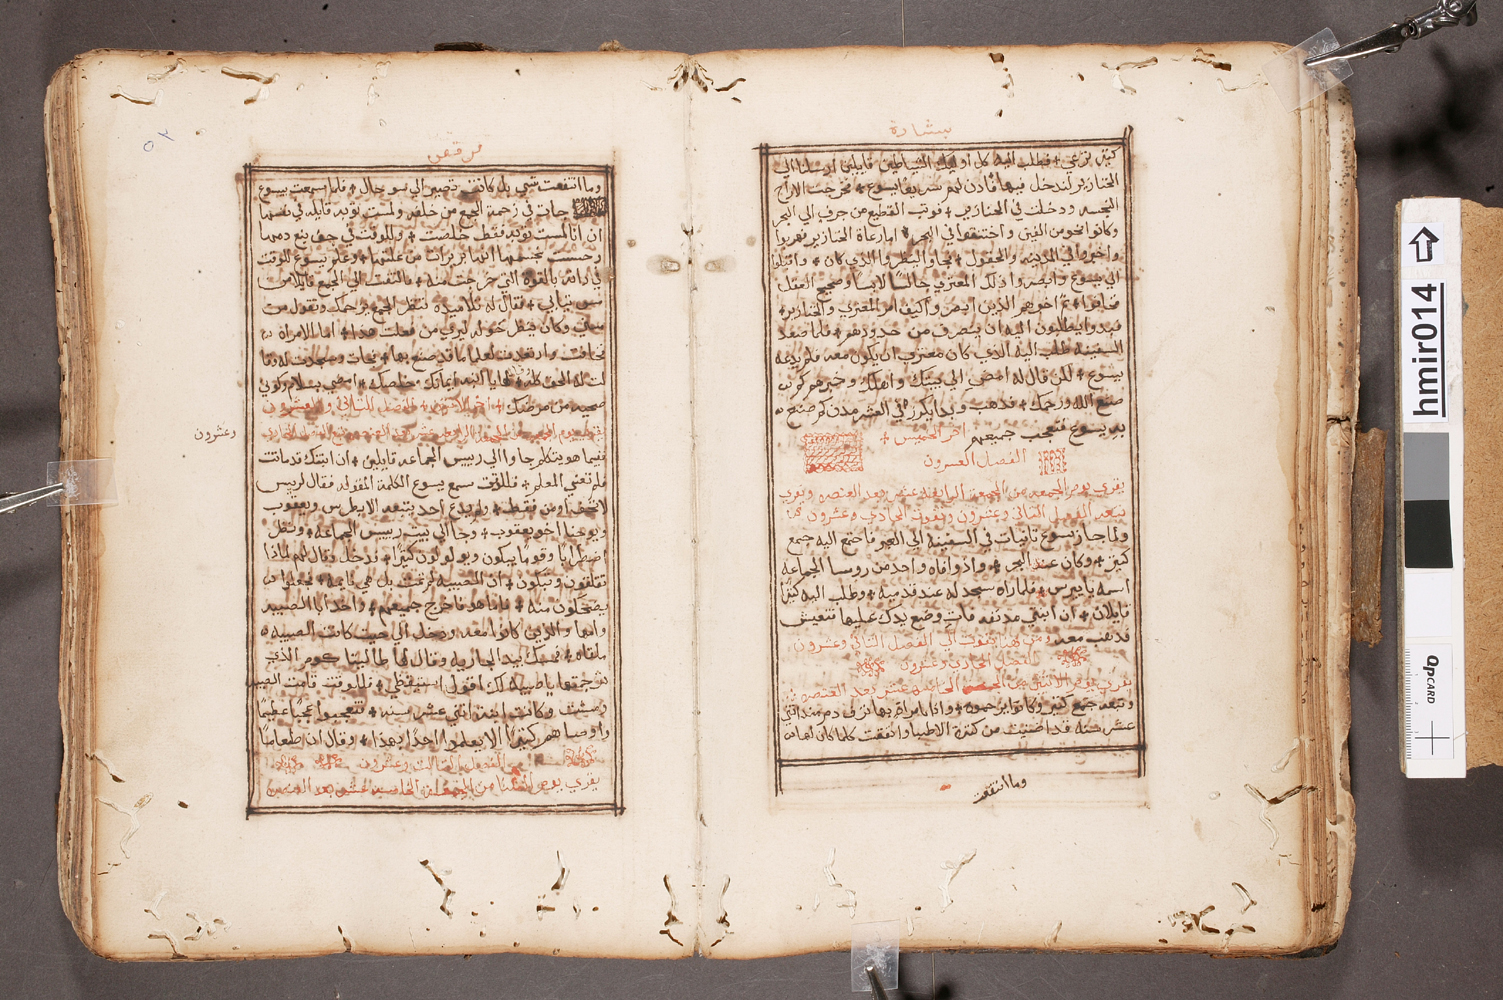 بشارة
كثير ترعي + فطلب اليه كل اوليك الشياطين قايلين ارسلنا الي
الخنازير لندخل فيها فاذن لهم سريعًا يسوع + فخرجت الارواح
النجسه ودخلت في الخنازير + فوثب القطيع من جرفٍ الي البحر
وكانوا نحو من الفين واختنقوا في البحر + اما رعاة الخنازير فهربوا
واخبروا في المدينه والحقول + فجاوا لينظروا الذي كان + واتوا
الي يسوع وابصروا ذلك المعتري جالسًا لابسًا وصحيح العقل
فخافوا + ثم اخبرهم الذين ابصروا كيف امر المعتري والخنازير +
فبدوا يطلبون اليه ان ينصرف من حدودهم + فلما صعد
السفينه طلب اليه الذي كان معتري ان يكون معه فلم يدعه
يسوع + لكن قال له امضي الي بيتك واهلك وخبرهم كم
صنع الله ورحمك + فذهب وبدا يكرز في العشر مدن كم صنع
به يسوع فتعجب جميعهم اخر الخميس +
الفصل العشرون
يقري يوم الجمعه من الجمعه الرابعة عشر بعد العنصره ويقري
بعد الفصل الثاني وعشرون ويفوت الحادي وعشرون
ولما جاز يسوع ثانيات في السفينه الي العبر فاجتمع اليه جمع
كثير + وكان عند البحر + واذ وافاه واحد من روسا الجماعه
اسمه يايرس + فلما راه سجد له عند قدميه + وطلب اليه كثيرًا
قايلاً + ان ابنتي مدنفه فات وضع يدك عليها فتعيش
فذهب معه ومن هنا تفوت الي الفصل الثاني وعشرون
الفصل الحادي وعشرون
يقري يوم الاثنين من الجمعه الخامسه عشر بعد العنصره
وتبعه جمع كثير وكانوا يزحموه + واذا بامراة بها نزف دم منذ اثني
عشر سنه قد اضنيت من كثرة الاطبا وانفقت كلما كان لها
وما انتفعت
مرقص
وما انتفعت شي بل كانت تصير الي سو حال + فلما سمعت بيسوع
جات في زحمة الجمع من خلفه ولمست ثوبه قايله في نفسها
ان انا لمست ثوبه فقط خلصت + وللوقت جف ينبوع دمها
وحست بجسمها انها برات من علتها + وعلم يسوع للوقت
في ذاته بالقوة التي خرجت منه + فالتفت الي الجمع قايلاً من
مس ثيابي + فقال له تلاميذه تنظر الجمع يزحمك وتقول من
مسني وكان ينظر حوله ليري من فعلت هذا + اما الامراة
فخافت وارتعدت لعلمها ما قد صنع بها + فجات وسجدت له وقا
لت له الحق كله + فقال يا ابنه ايمانك خلصك + امضي بسلام وكوني
صحيحه من مرضك + اخر الاثنين + الفصل الثاني والعشرون
وعشرون
فيما هو يتكلم جاوا الي رييس الجماعه قايلين + ان ابنتك قد ماتت
فلم تعني المعلم + فللوقت سمع يسوع الكلمة المقوله فقال لرييس
لا تخف امن فقط + ولم يدع احد يتبعه الا بطرس ويعقوب
ويوحنا اخو يعقوب + وجا الي بيت رييس الجماعه + ونظر
اضطرابًا وقومًا يبكون ويولولون كثيرًا + فدخل وقال لهم لماذا
تقلقون وتبكون + ان الصبيه لم تمت بل هي نايمه + فجعلوا
يضحكون منه + فاما هو فاخرج جميعهم + واخذ ابا الصبيه
وامها والذين كانوا معه ودخل الي حيث كانت الصبيه
ملقاه + فمسك بيد الجاريه وقال لها طاليتا كومي الذي
ترجمتها يا صبيه لك اقول استيقظي + فللوقت قامت الصبيه
ومشت وكانت ابنة اثني عشر سنه + فتعجبوا عجبًا عظيمًا
واوصاهم كثيرًا الا يعلموا احدًا بهذا + وقال ان طعامًا
الفصل الثالث وعشرون
يقري يوم الثلاثا من الجمعه الخامسه عشر بعد العنصره
hmir014
QPCARD